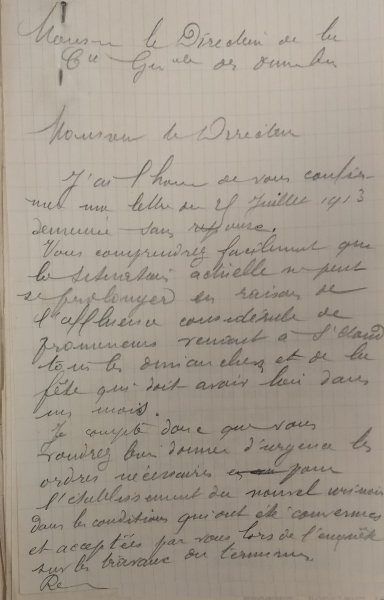 Monsieur le Directeur de la
Cie Genale des Omnibus
Monsieur le Directeur
J'ai l'honr de vous confir-
mer ma lettre du 25 Juillet 1913
demeurée sans reponse.
Vous comprendrez facilement que
la situation actuelle ne peut
se prolonger en raison de
l'affluence considérable de
promeneurs venant à St Cloud
tous les dimanches et de la
fête qui doit avoir lieu dans
un mois.
Je compte donc que vous
voudrez bien donner d'urgence les
ordres nécessaires pour
l'établissement du nouvel urinoir
dans les conditions qui ont été convenues
et acceptées par vous lors de l'enquête
sur les travaux du terminus